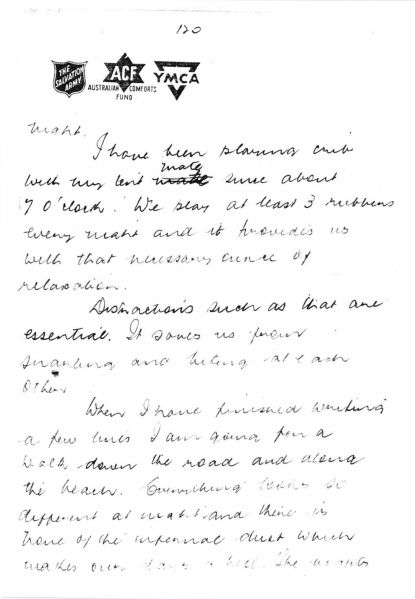 120
THE SALVATION ARMY
ACF
AUSTRALIAN COMFORTS FUND
YMCA
night.
I have been playing crib
mate
with my tent since about
7 O'clock. We play at least 3 rubbers
every night and it provides us
with that necessary ounce of
relaxation.
Distractions such as that are
essential. It saves us from
snarling and biting at each
other.
When I have finished writing
a few lines I am going for a
walk down the road and along
the beach. Everything looks so
different at night and there is
none of the infernal dust which
makes our days a hell. The nights